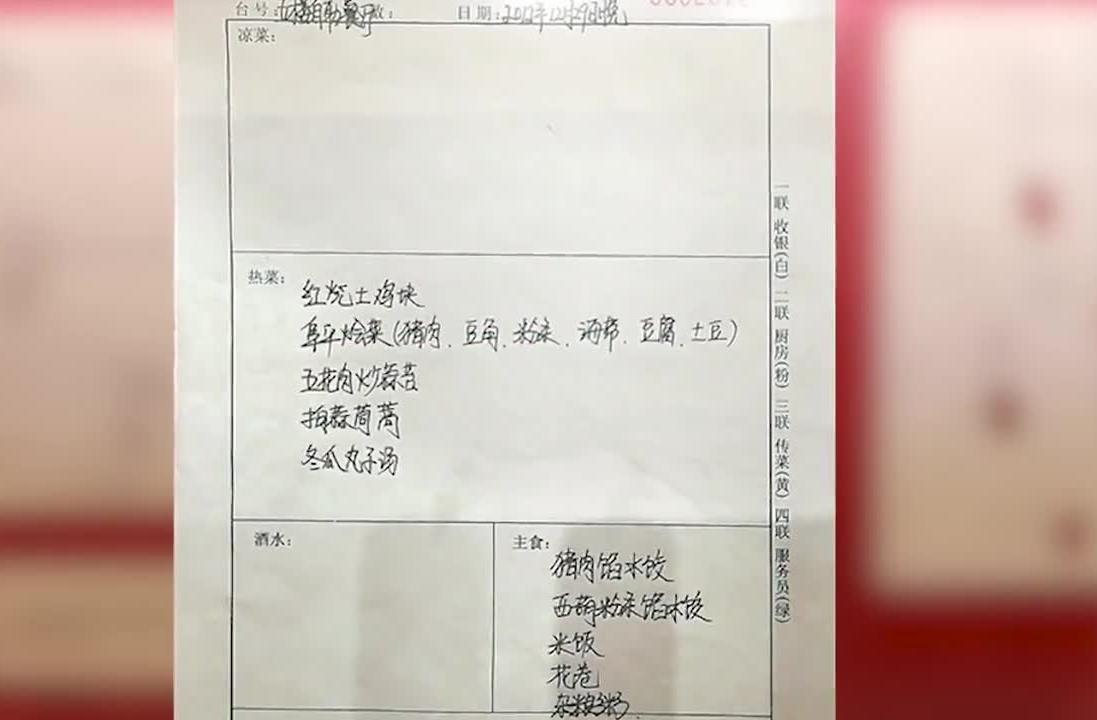 台号: 七楼自助餐厅 日期: 2012年12月29日晚
凉菜:
热菜:
红烧土鸡块
阜平烩菜(猪肉、豆角、粉条、海带、豆腐、土豆)
五花肉炒蒜苔
拍蒜茼蒿
冬瓜丸子汤
酒水:
主食:
猪肉馅水饺
西葫粉条馅水饺
米饭
花卷
杂粮粥
一联 收银(白) 二联 厨房(粉) 三联 传菜(黄) 四联 服务员(绿)